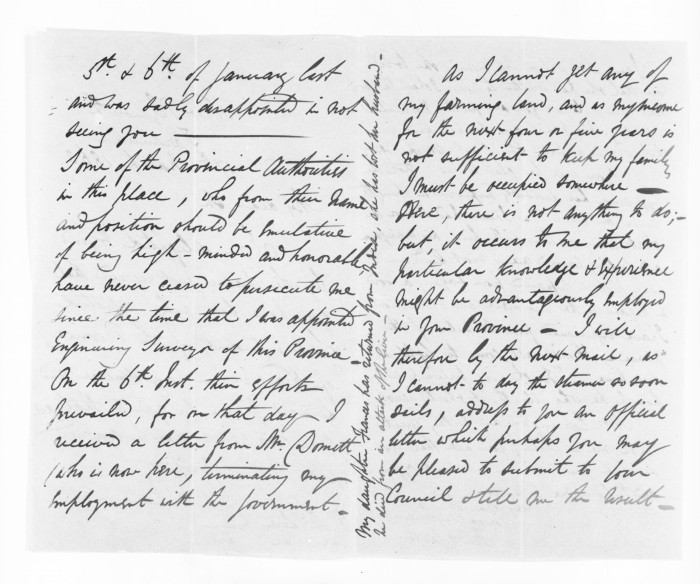 5th. & 6th. of January last
- and was sadly disappointed in not
seeing you
Some of the Provincial Authorities
in this place, who from their names
and position should be emulative
of being high-minded and honorable
have never ceased to persecute me
since the time that I was appointed
Engineering Surveyor of this Province -
On the 6th. Inst. their efforts
prevailed, for on that day I
received a letter from Mr. Domett
(who is now here, terminating my
employment with the Government -
My daughter Frances has returned from India, she has lost her husband -
he died from an attack of the liver -
As I cannot get any of
my farming land, and as my income
for the next four or five years is
not sufficient to keep my family
I must be occupied somewhere -
Here, there is not anything to do; -
but, it occurs to me that my
particular knowledge & experience
might be advantageously employed
in your Province - I will
therefore by the next mail, as
I cannot to day the steamer so soon
sails, address to you an official
letter which perhaps you may
be pleased to submit to your
Council & tell me the result -